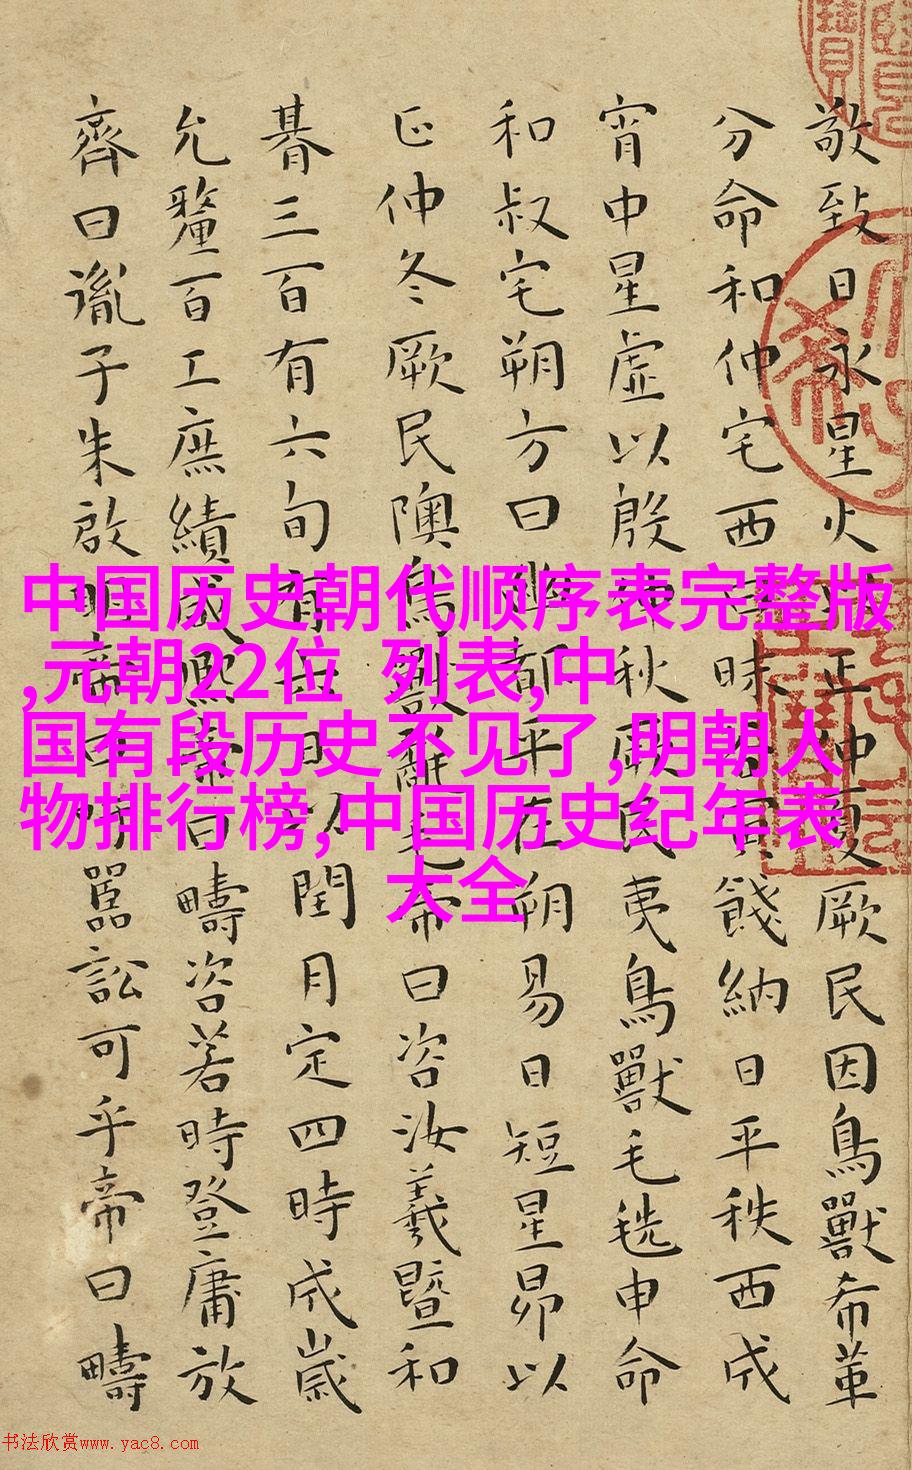 敬致日永星火正仲夏厥民因鳥獸希革
分命和仲宅西曰昧谷寅餞納日平秩西成
宵中星虛以殷仲秋厥民夷鳥獸毛毨申命
和叔宅朔方曰幽都平在朔易日短星昴以
正仲冬厥民隩鳥獸氄毛帝曰咨汝羲暨和
朞三百有六旬有六日以閏月定四時成歲
允釐百工庶績咸熙帝曰疇咨若時登庸放
齊曰胤子朱啟明帝曰吁嚚訟可乎帝曰疇
中国历史朝代顺序表完整版
,元朝22位 列表,中
国有段历史不见了,明朝人
物排行榜,中国历史纪年表
大全
书法欣赏www.yac8.com